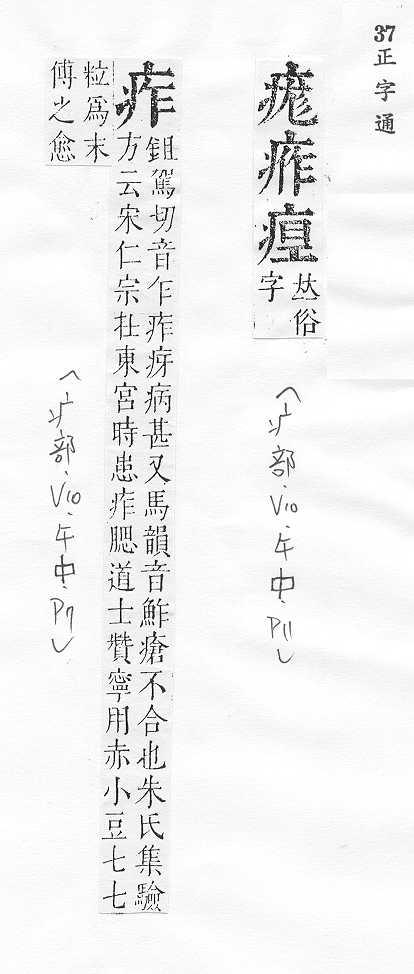 37正字通
痄
𠀤俗
字
（疒部·V10·午中·P11）
痄
鉏駕切音乍痄疨病甚又馬韻音鮓瘡不合也朱氏集驗
方云宋仁宗在東宮時患痄腮道士贊寧用赤小豆七七
粒爲末
傅之愈
（疒部·V10·午中·P7）